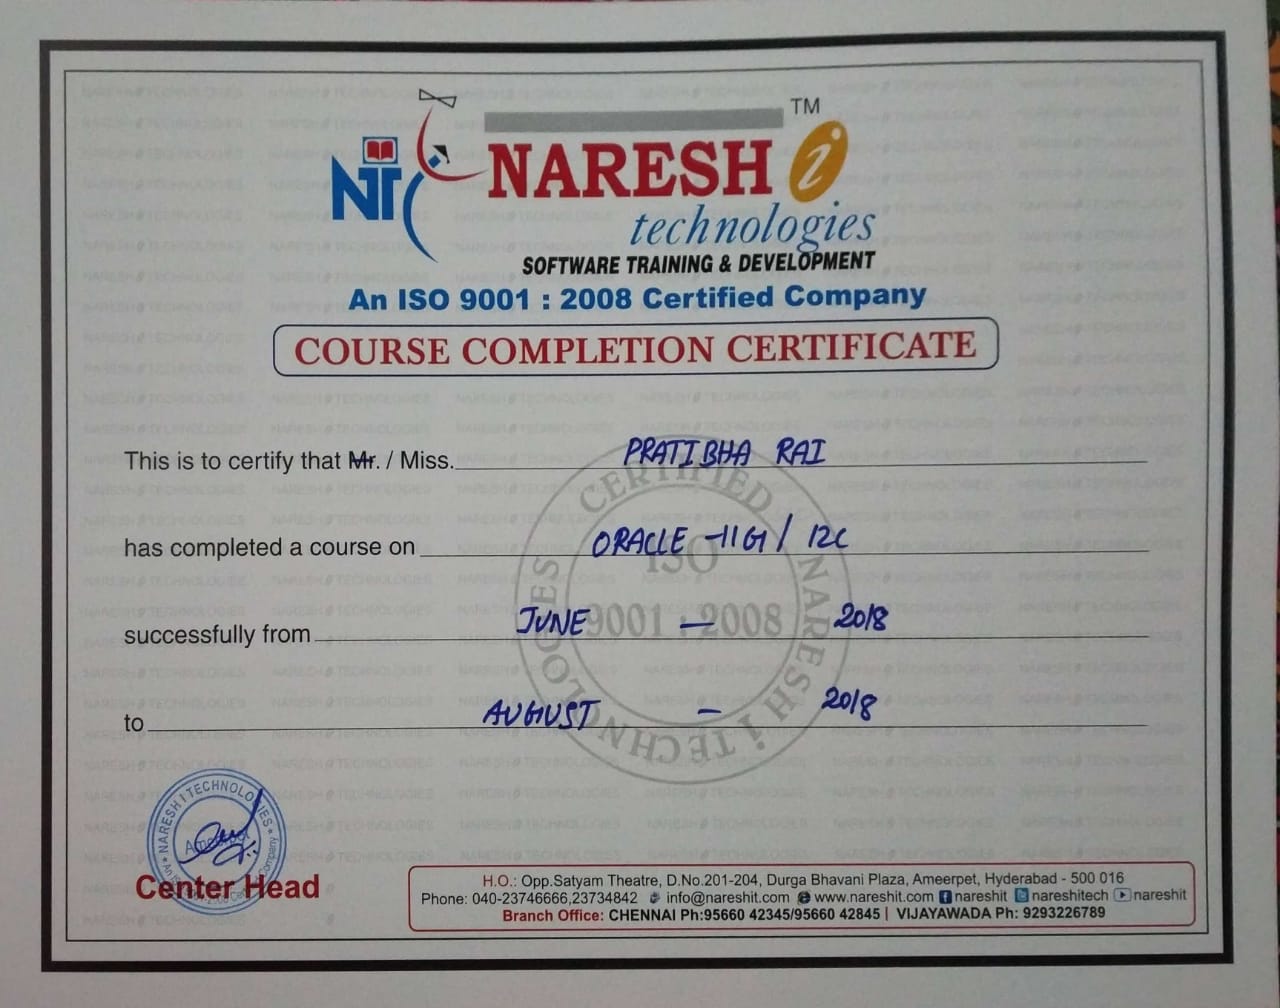 TM
NT NARESH i
technologies
SOFTWARE TRAINING & DEVELOPMENT
An ISO 9001 : 2008 Certified Company
COURSE COMPLETION CERTIFICATE
This is to certify that Mr. / Miss. PRATIBHA RAI
has completed a course on ORACLE -11G / 12C
successfully from JUNE — 2018
to AUGUST — 2018
CERTIFIED NARESH i TECHNOLOGIES
ISO
9001 : 2008
NARESH I TECHNOLOGIES
Ameerpet
Center Head
H.O.: Opp.Satyam Theatre, D.No.201-204, Durga Bhavani Plaza, Ameerpet, Hyderabad - 500 016
Phone: 040-23746666,23734842 info@nareshit.com www.nareshit.com nareshit nareshitech nareshit
Branch Office: CHENNAI Ph:95660 42345/95660 42845 | VIJAYAWADA Ph: 9293226789